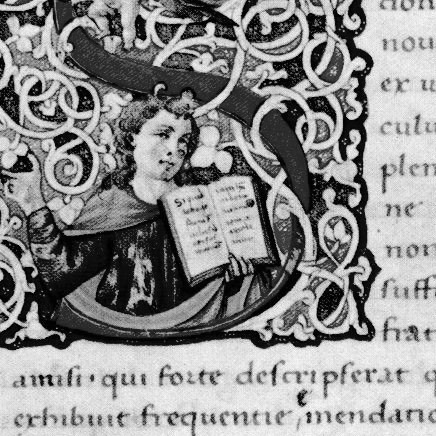 nou
ex u
culu
plen
ne
non
suffi
frat
amisi · qui forte descripserat q
exhibuit frequentie, mendatio